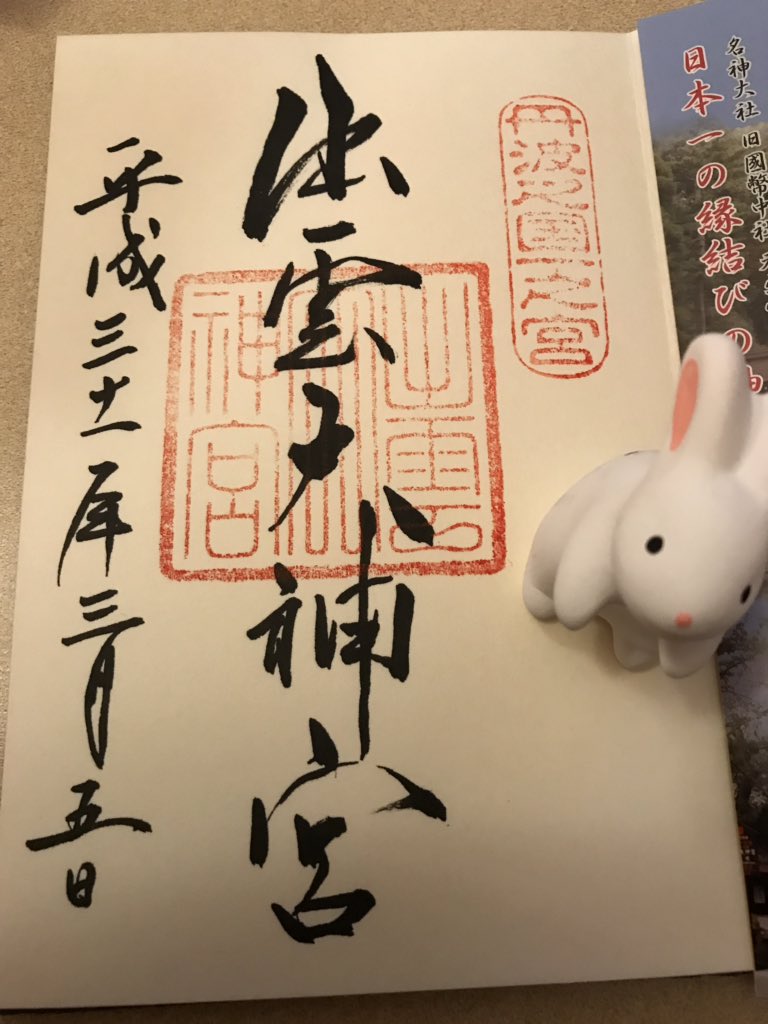 名神大社 旧國幣中社 元
日本一の縁結びの神
丹波之国一之宮
出雲大神宮
出雲大神宮
平成三十一年三月五日